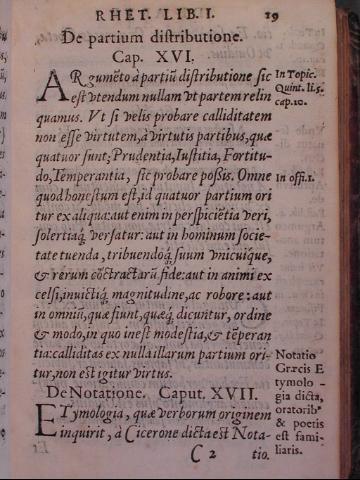 RHET. LIB. I. 19
De partium distributione.
Cap. XVI.
ARgumẽto à partiũ distributione sic
est vtendum nullam vt partem relin
quamus. Vt si velis probare calliditatem
non esse virtutem, à virtutis partibus, quæ
quatuor sunt; Prudentia, Iustitia, Fortitu-
do, Temperantia, sic probare poßis. Omne
quod honestum est, id quatuor partium ori
tur ex aliqua: aut enim in perspiciẽtia veri,
solertiaq́; versatur: aut in hominum socie-
tate tuenda, tribuendoq́; suum vnicuique,
& rerum cõtractarũ fide: aut in animi ex
celsi, inuictiq́; magnitudine, ac robore: aut
in omniũ, quæ fiunt, quæq́; dicuntur, ordine
& modo, in quo inest modestia, & tẽperan
tia: calliditas ex nulla illarum partium ori-
tur, non est igitur virtus.
De Notatione. Caput. XVII.
ETymologia, quæ verborum originem
inquirit, à Cicerone dicta est Nota-
C 2 tio.
In Topic.
Quint. li. 5.
cap. 10.
In offi. 1.
Notatio
Græcis E
tymolo-
gia dicta,
oratorib9
& poetis
est fami-
liaris.